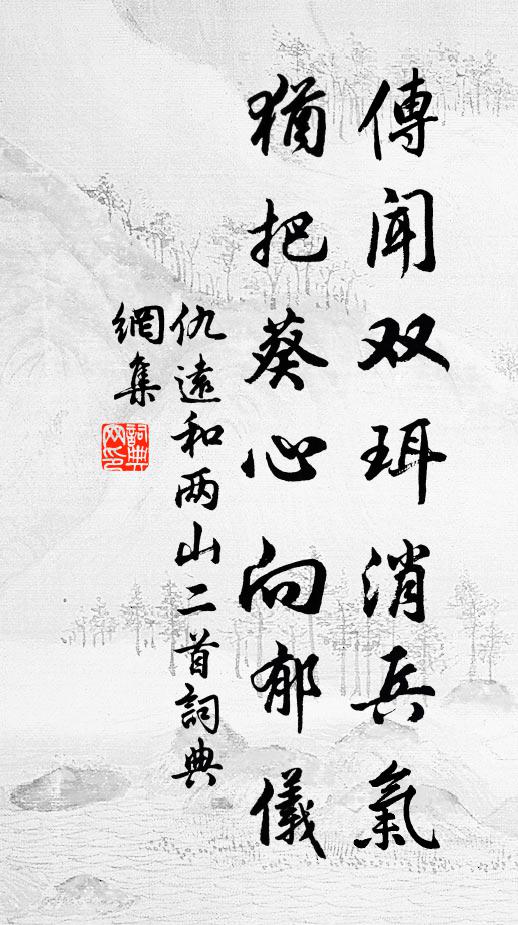 傳聞双珥消兵氣
猶把葵心向郁儀
仇遠和两山二首詞典
網集
詞典网印